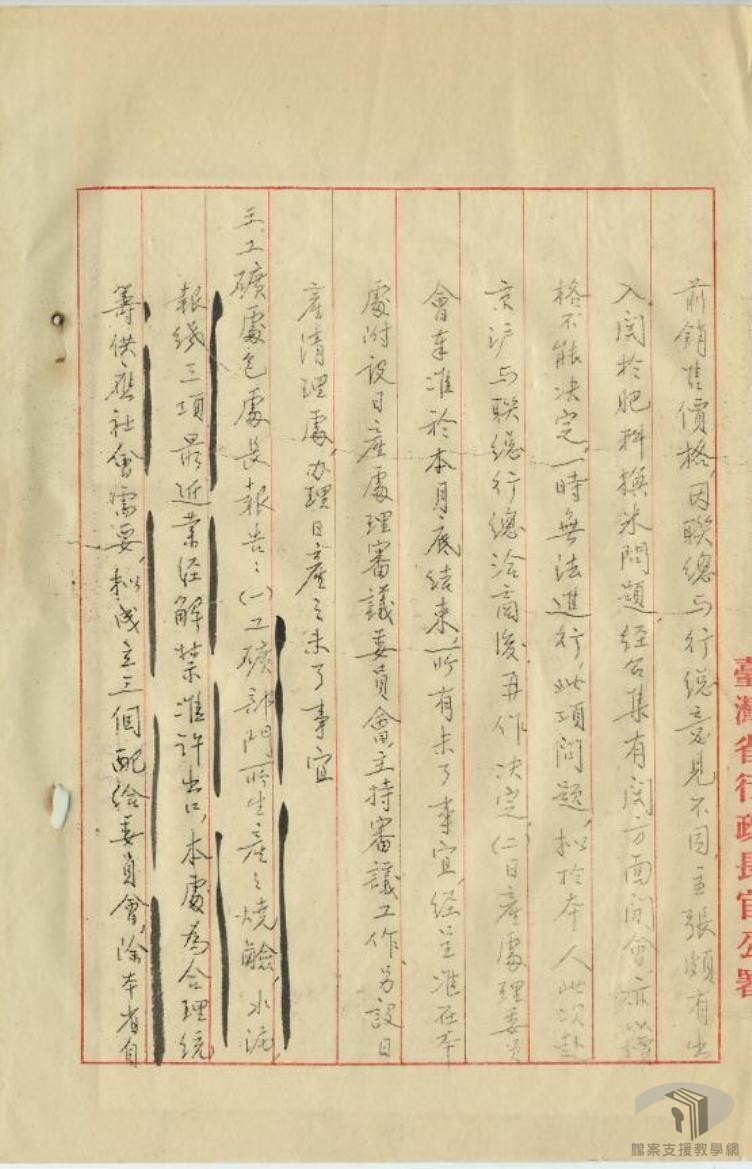 前銷售價格,因聯總与行總意見不同,主張頗有出
入,関於肥料換米問題,經召集有関方面開會,亦以價
格不能决定,一時無法進行,此項問題,擬於本人此次赴
京沪与聯總行總洽商後,再作决定,(二)日產處理委員
會奉准於本月底结束,所有未了事宜,經呈准在本
處附設日產處理審議委員會,主持審議工作,另設日
產清理處,办理日產之未了事宜
三、工礦處包處長報告:(一)工礦部門所生產之燒鹼,水泥,
報紙三項最近業经解禁准许出口,本處為合理統
籌供應社會需要,拟成立三個配给委員會,除本省自
臺灣省行政長官公署
檔案支援教學網